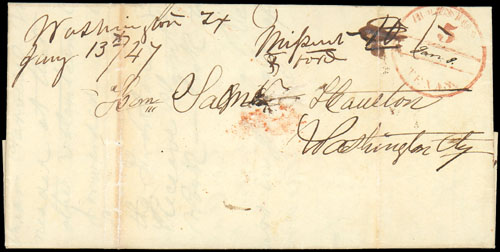 Washington Tx
Jany 13th/47
Missent
& ford
5
Jan 8
TEXAS
Hon Saml Houston
Washington City